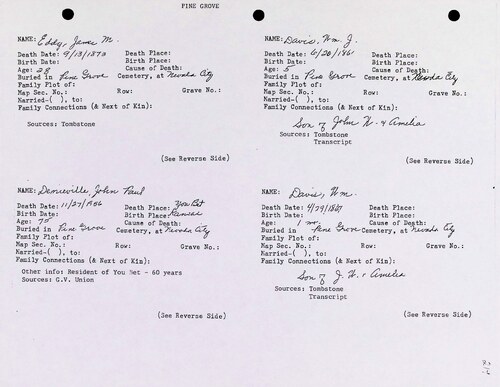 PINE GROVE
NAME: Eddy, James M.
Death Date: 9/13/1873 Death Place:
Birth Date: Birth Place:
Age: 28 Cause of Death:
Buried in Pine Grove Cemetery, at Nevada City
Family Plot of:
Map Sec. No.: Row: Grave No.:
Married-( ), to:
Family Connections (& Next of Kin):
Sources: Tombstone
(See Reverse Side)
NAME: Davis, Wm. J.
Death Date: 6/20/186 Death Place:
Birth Date: Birth Place:
Age: 5 Cause of Death:
Buried in Pine Grove Cemetery, at Nevada City
Family Plot of:
Map Sec. No.: Row: Grave No.:
Married-( ), to:
Family Connections (& Next of Kin):
Son of John W. & Amelia
Sources: Tombstone
Transcript
(See Reverse Side)
NAME: John Paul
Death Date: 11/27/1956 Death Place: You Bet
Birth Date: Birth Place: Kansas
Age: 75 Cause of Death:
Buried in Pine Grove Cemetery, at Nevada City
Family Plot of:
Map Sec. No.: Row: Grave No.:
Married-( ), to:
Family Connections (& Next of Kin):
Other info: Resident of You Bet - 60 years
Sources: G.V. Union
(See Reverse Side)
NAME: Davis, Wm.
Death Date: 4/29/1861 Death Place:
Birth Date: Birth Place:
Age: 1 mo. Cause of Death:
Buried in Pine Grove Cemetery, at Nevada City
Family Plot of:
Map Sec. No.: Row: Grave No.:
Married-( ), to:
Family Connections (& Next of Kin):
Son of J. W. & Amelia
Sources: Tombstone
Transcript
(See Reverse Side)